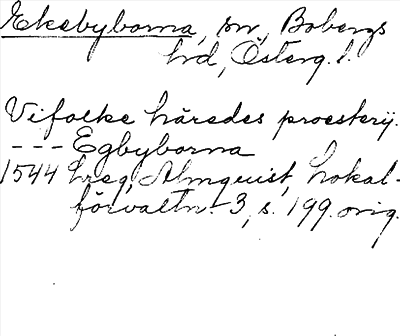 Ekebyborna, sn, Bobergs
hd, Österg. l.
Vifolke häredes proesterij.
--- Egbyborna
1544 hreg, Almquist, Lokal-
förvaltn. 3, s. 199. orig.